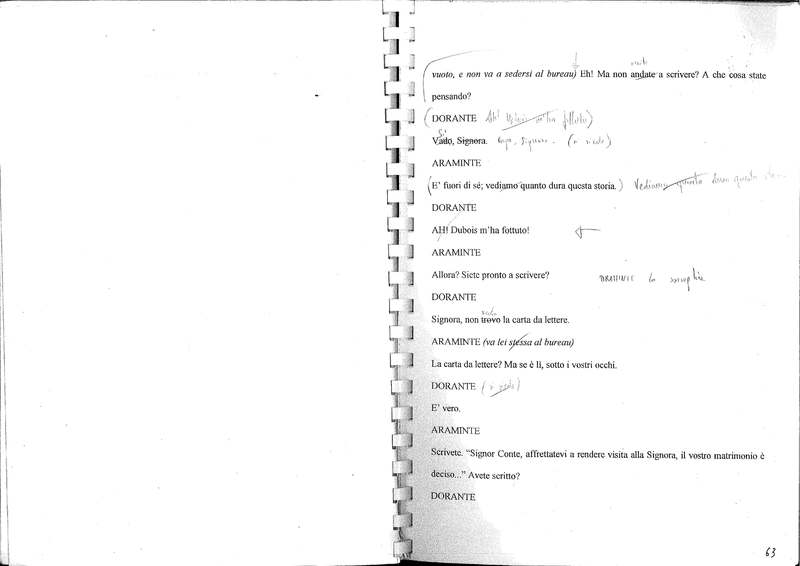 vuoto, e non va a sedersi al bureau) Eh! Ma non andate a scrivere? A che cosa state
pensando?
(DORANTE Ah! Dubois m'ha fottuto)
Sì
Vado, Signora. Signora.
ARAMINTE
(E' fuori di sé; vediamo quanto dura questa storia.) Vediamo quanto dura questa
DORANTE
AH! Dubois m'ha fottuto!
ARAMINTE
Allora? Siete pronto a scrivere?
DORANTE
vedo
Signora, non trovo la carta da lettere.
ARAMINTE (va lei stessa al bureau)
La carta da lettere? Ma se è lì, sotto i vostri occhi.
DORANTE
E' vero.
ARAMINTE
Scrivete. “Signor Conte, affrettatevi a rendere visita alla Signora, il vostro matrimonio è
deciso...” Avete scritto?
DORANTE
63